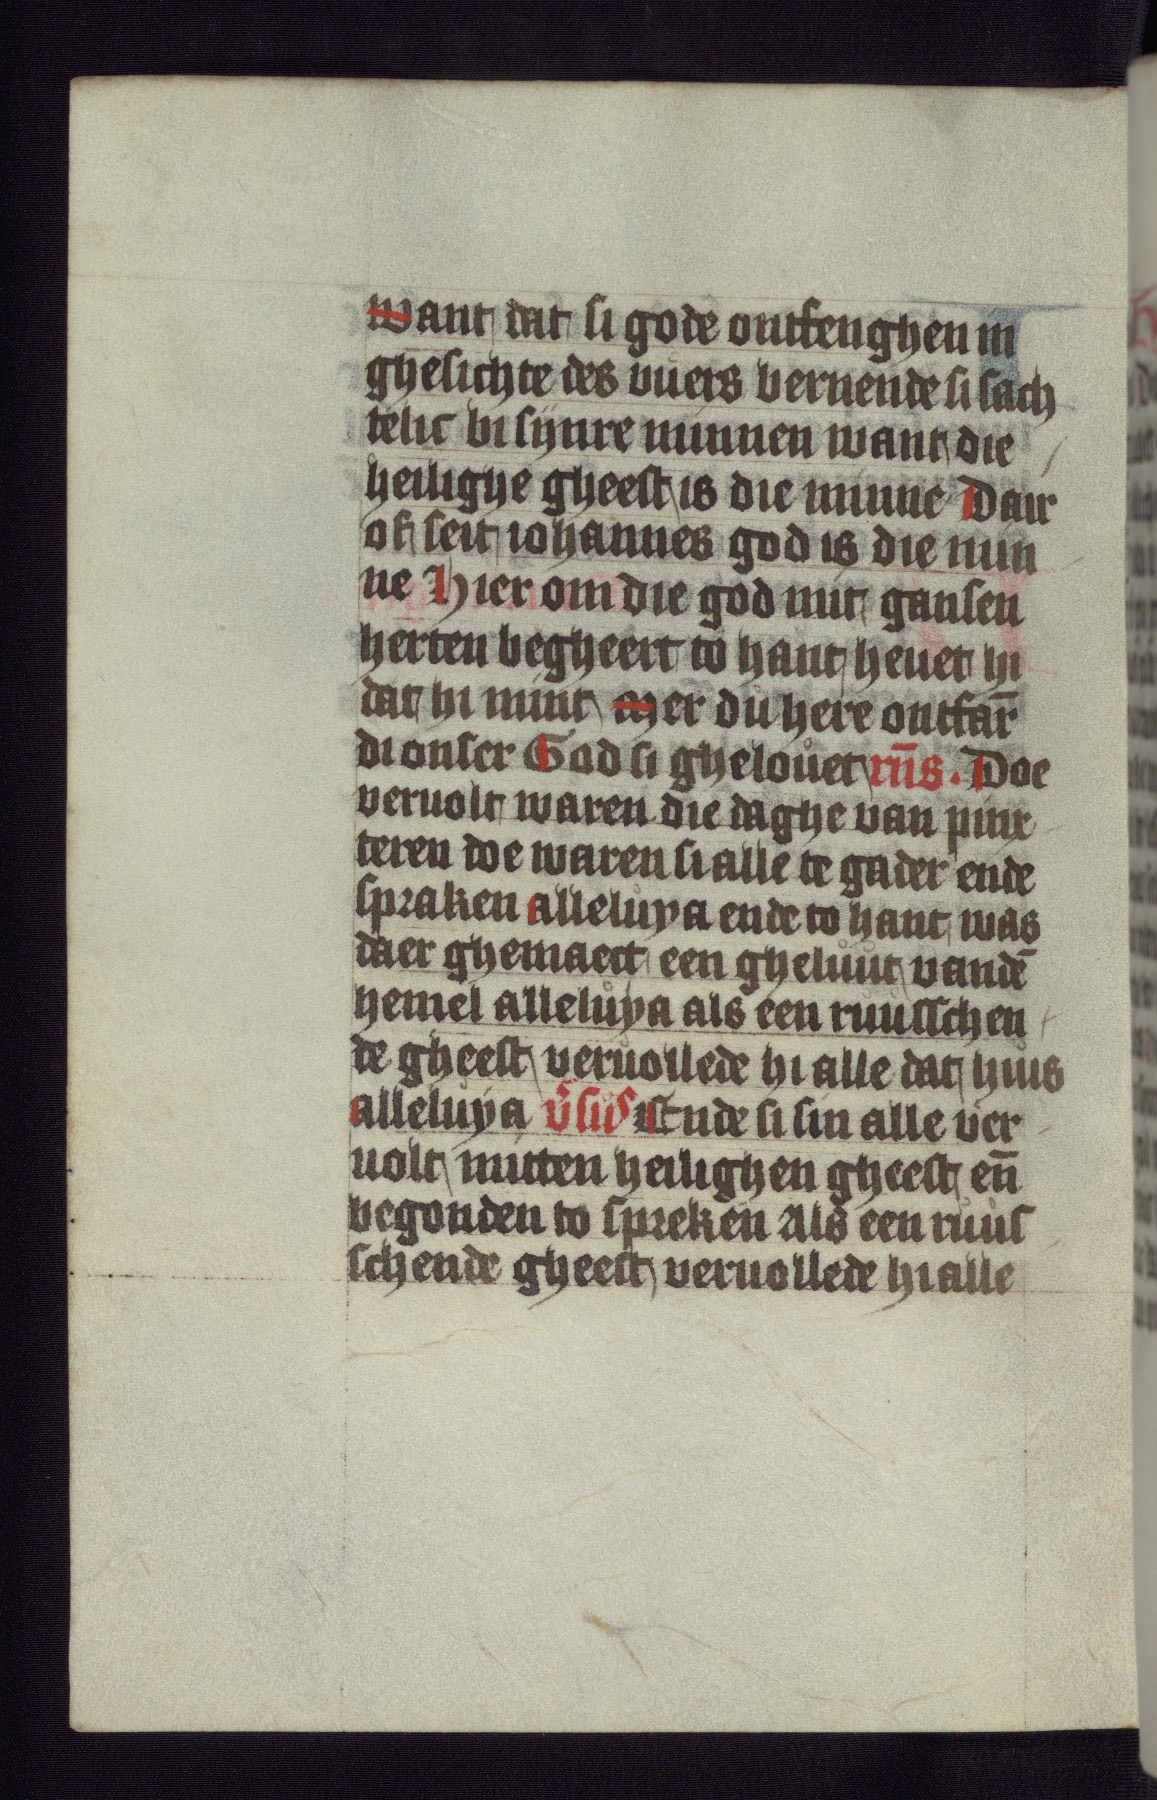 want dat si gode ontfenghen in
ghesichte des vuers bernende si sach
telic bi sijnre minnen want die
heilighe gheest is die minne Dair
of seit iohannes god is die min
ne Hier om die god mit gansen
herten begheert to hant heuet hi
dat hi mint Mer du here ontfar̄
di onser God si ghelouet rn̄s. Doe
veruolt waren die daghe van pinx
teren doe waren si alle te gader ende
spraken alleluya ende to hant was
daer ghemaect een gheluut vandē
hemel alleluya als een ruusschen
de gheest veruollede hi alle dat huus
alleluya v̄sus Ende si sin alle ver
uolt mitten heilighen gheest en̄
begonden to spreken Als een ruus
schende gheest veruollede hi alle